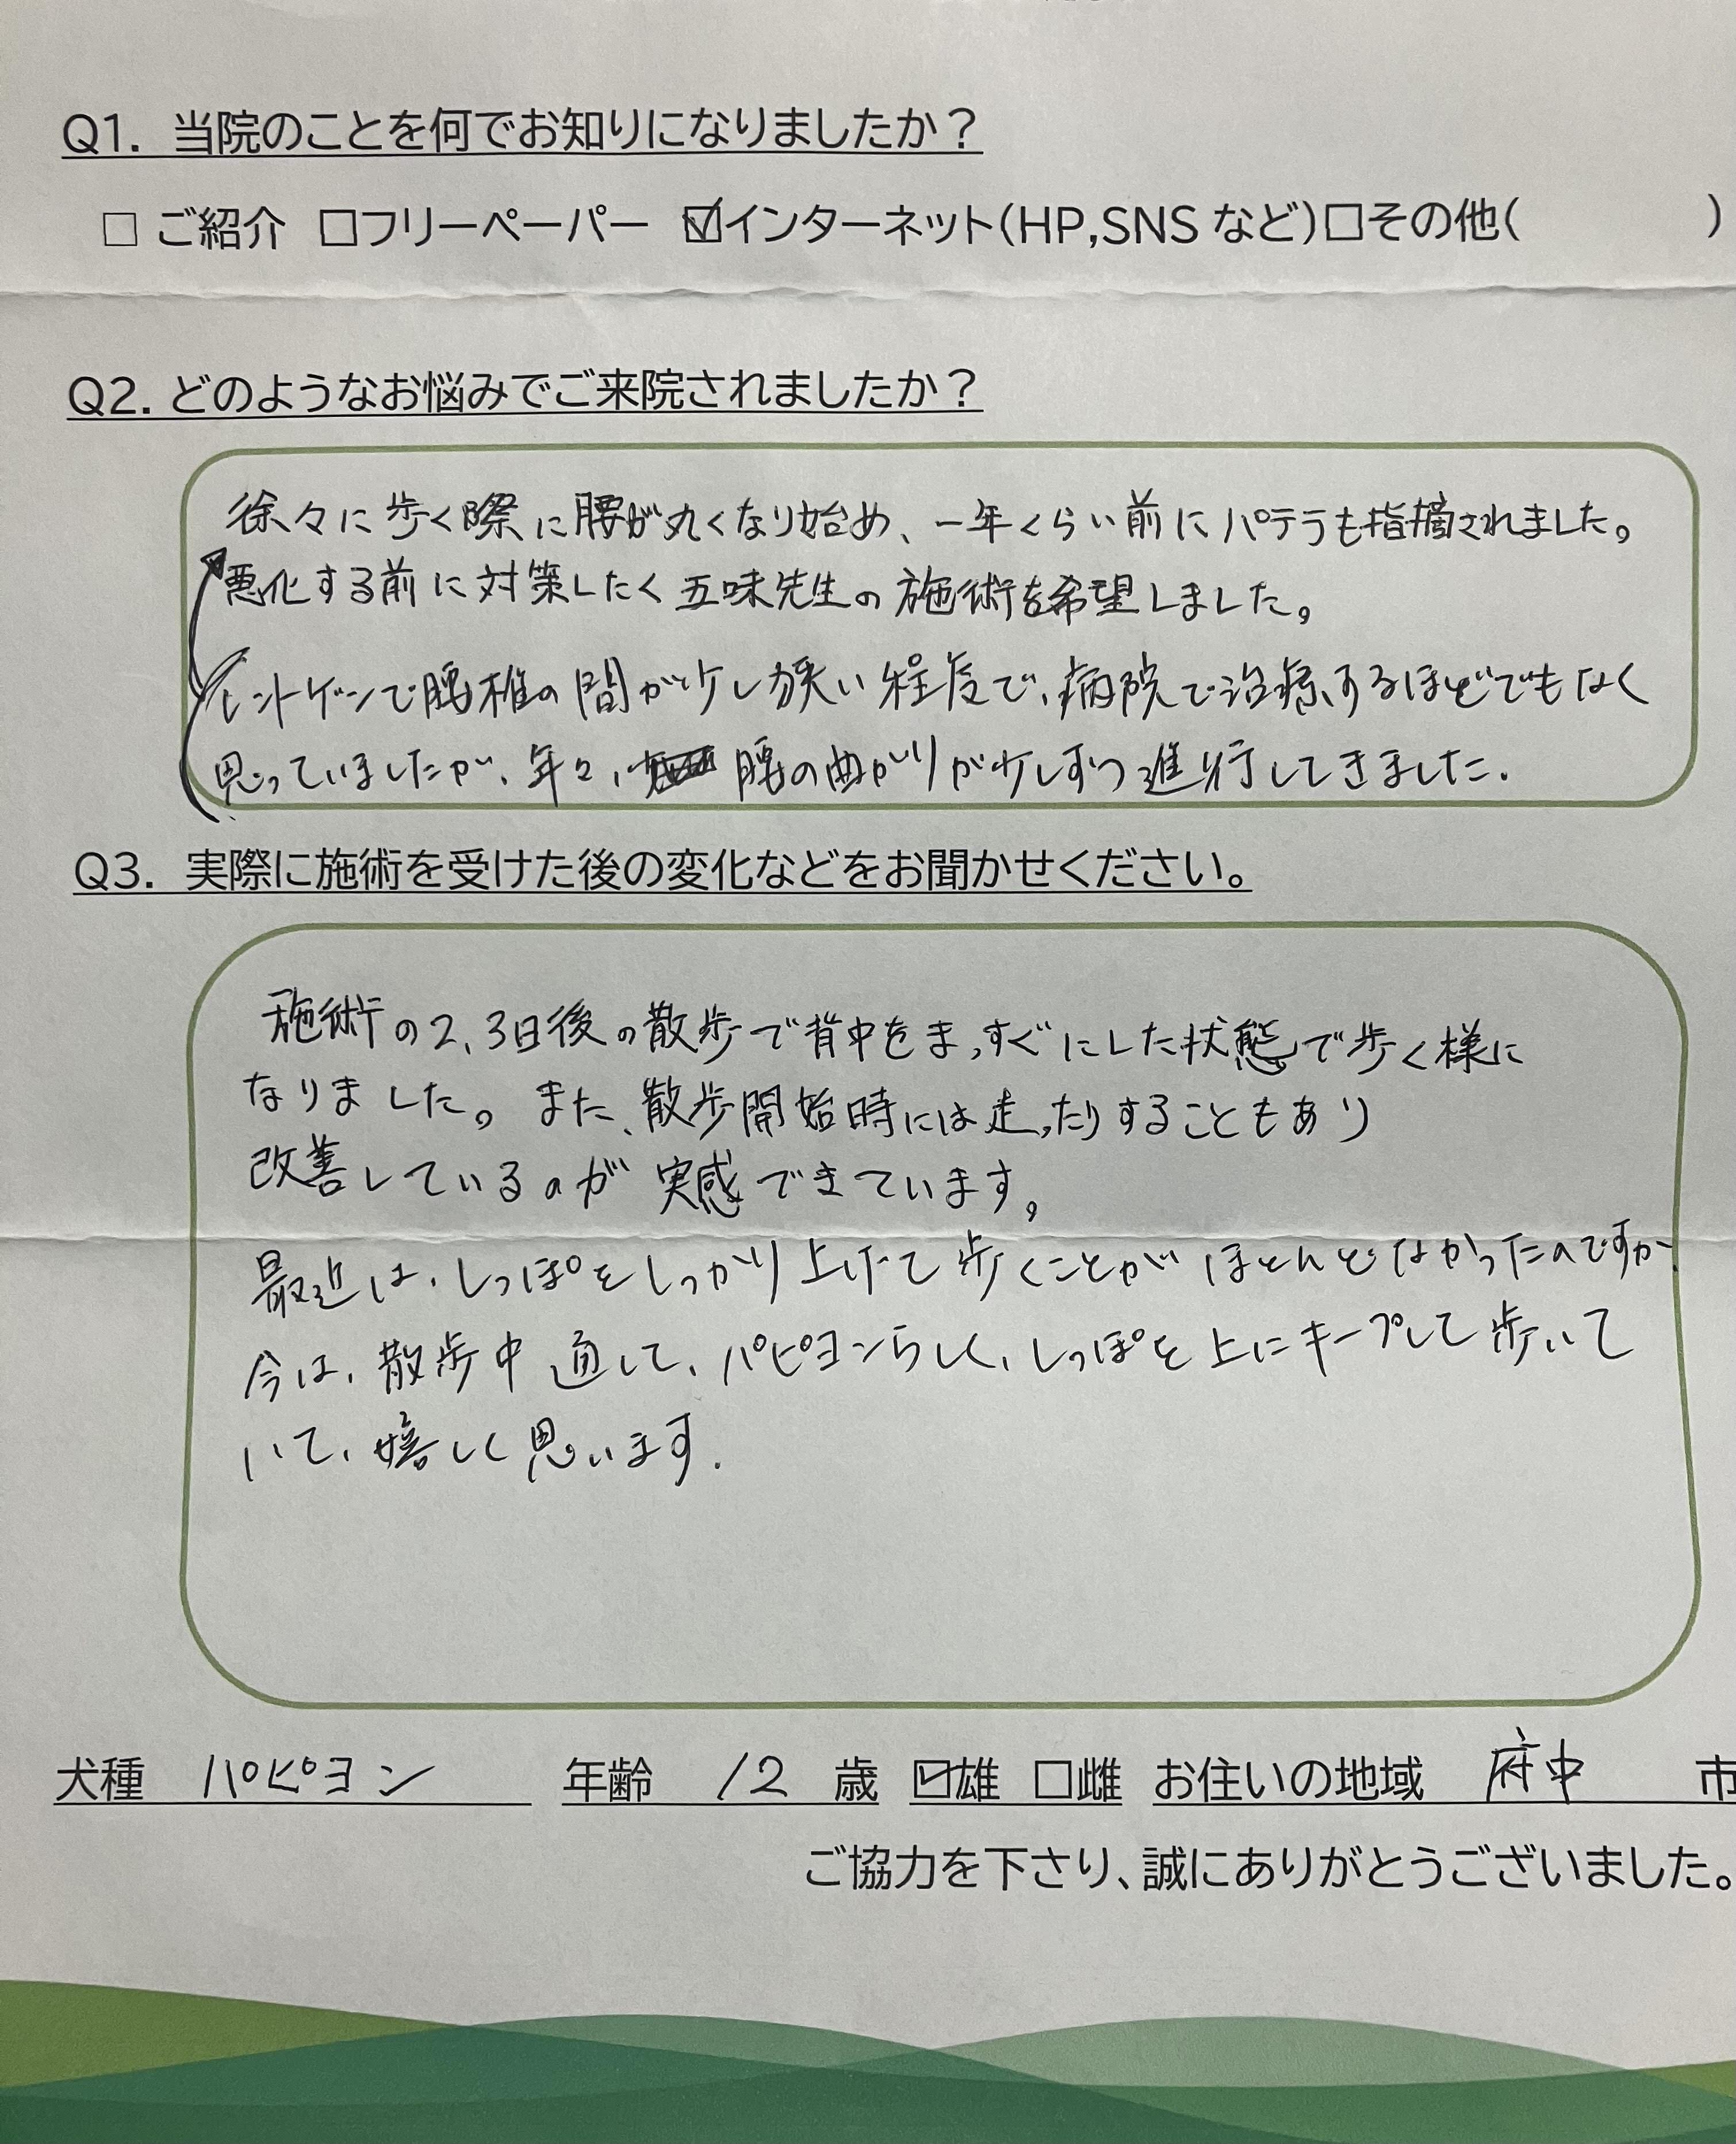 Q1. 当院のことを何でお知りになりましたか？
□ ご紹介 □フリーペーパー ☑インターネット(HP,SNS など)□その他( )
Q2. どのようなお悩みでご来院されましたか？
徐々に歩く際に腰が丸くなり始め、一年くらい前にパテラも指摘されました。
悪化する前に対策したく五味先生の施術を希望しました。
レントゲンで腰椎の間が少し狭い程度で、病院で治療するほどでもなく
思っていましたが、年々、腰の曲がりが少しずつ進行してきました.
Q3. 実際に施術を受けた後の変化などをお聞かせください。
施術の2、3日後の散歩で背中をまっすぐにした状態で歩く様に
なりました。また、散歩開始時には走ったりすることもあり
改善しているのが実感できています。
最近は、しっぽをしっかり上げて歩くことがほとんどなかったのですが、
今は、散歩中通して、パピヨンらしく、しっぽを上にキープして歩いて
いて、嬉しく思います.
犬種 パピヨン 年齢 12 歳 ☑雄 □雌 お住いの地域 府中 市
ご協力を下さり、誠にありがとうございました。